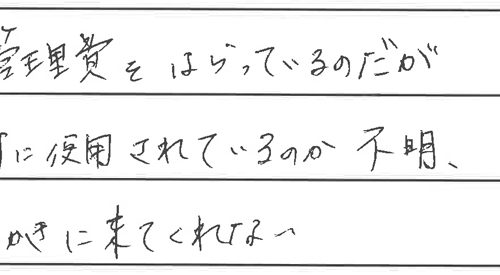 管理費をはらっているのだが
に使用されているのか不明、
かきに来てくれない